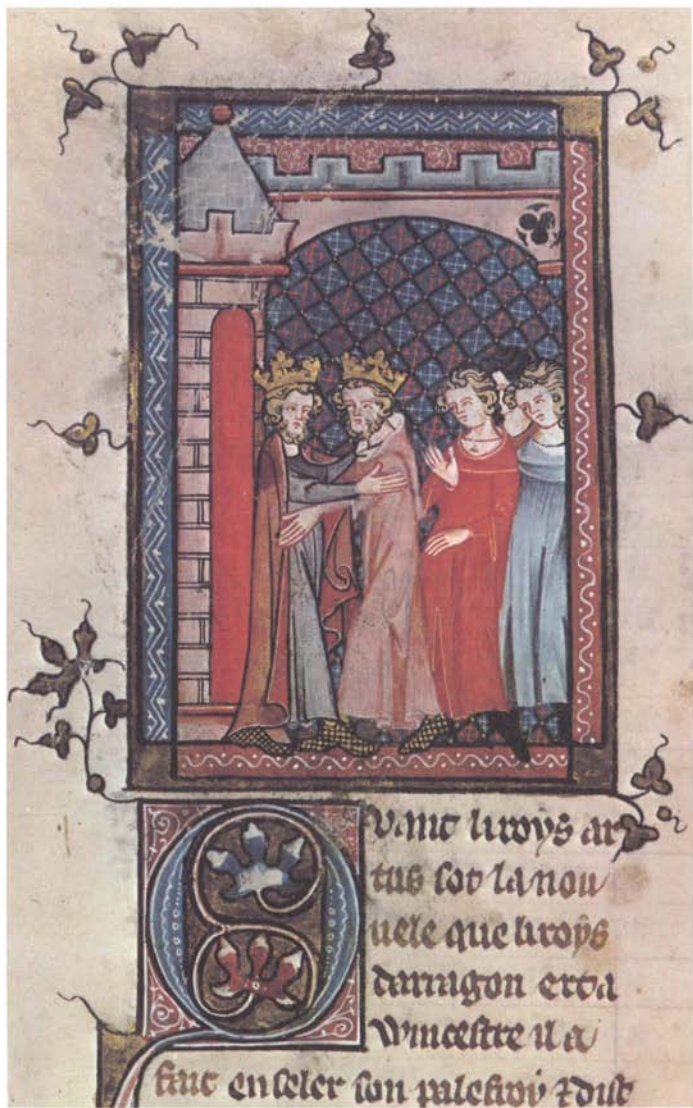 Quant li roys ar
tus sot la nou
uele que li roys
darragon ert a
Wincestre il a
fait enseler son palefroy ⁊ dist